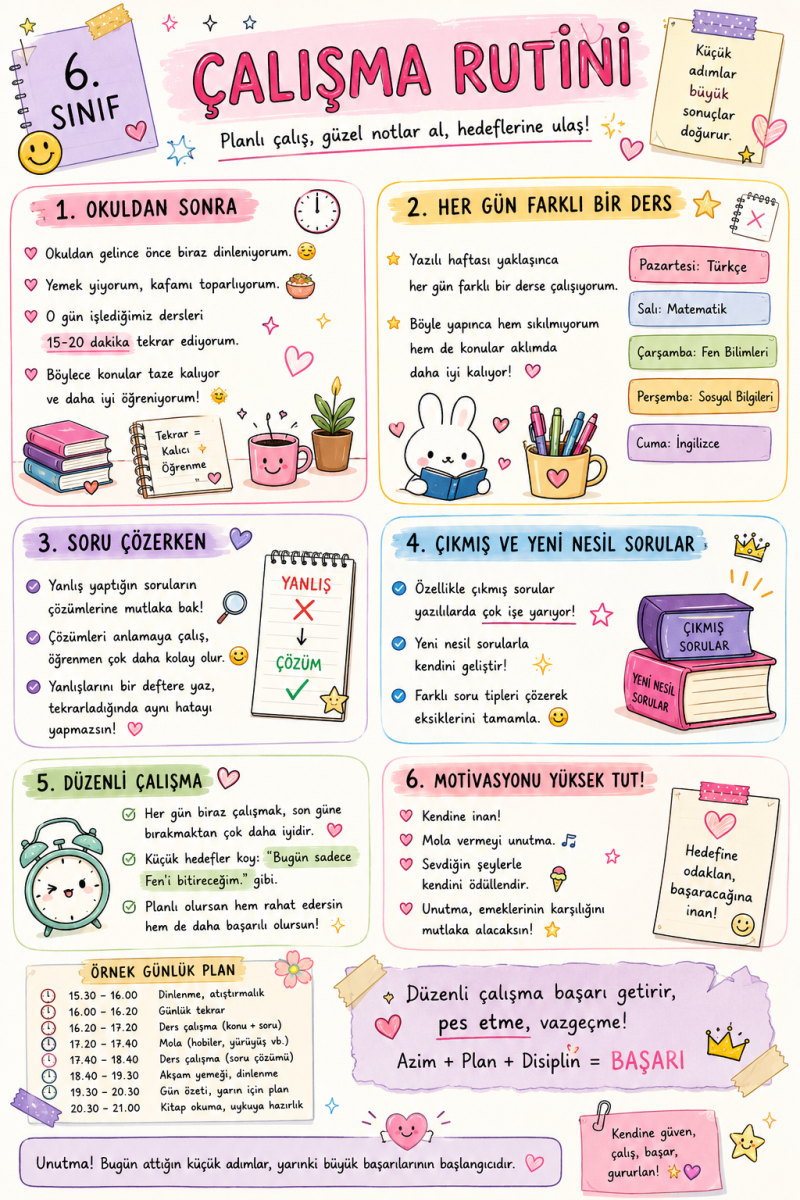 6.
SINIF
ÇALIŞMA RUTİNİ
Planlı çalış, güzel notlar al, hedeflerine ulaş!
Küçük
adımlar
büyük
sonuçlar
doğurur.
1. OKULDAN SONRA
Okuldan gelince önce biraz dinleniyorum.
Yemek yiyorum, kafamı toparlıyorum.
O gün işlediğimiz dersleri
15-20 dakika tekrar ediyorum.
Böylece konular taze kalıyor
ve daha iyi öğreniyorum!
Tekrar =
Kalıcı
Öğrenme
"
2. HER GÜN FARKLI BİR DERS
Yazılı haftası yaklaşınca
her gün farklı bir derse çalışıyorum.
Böyle yapınca hem sıkılmıyorum
hem de konular aklımda
daha iyi kalıyor!
Pazartesi: Türkçe
Salı: Matematik
Çarşamba: Fen Bilimleri
Perşemba: Sosyal Bilgileri
Cuma: İngilizce
3. SORU ÇÖZERKEN
Yanlış yaptığın soruların
çözümlerine mutlaka bak!
Çözümleri anlamaya çalış,
öğrenmen çok daha kolay olur.
Yanlışlarını bir deftere yaz,
tekrarladığında aynı hatayı
yapmazsın!
YANLIŞ
ÇÖZÜM
4. ÇIKMIŞ VE YENİ NESİL SORULAR
Özellikle çıkmış sorular
yazılılarda çok işe yarıyor!
Yeni nesil sorularla
kendini geliştir!
Farklı soru tipleri çözerek
eksiklerini tamamla.
ÇIKMIŞ
SORULAR
YENİ NESİL
SORULAR
5. DÜZENLİ ÇALIŞMA
Her gün biraz çalışmak, son güne
bırakmaktan çok daha iyidir.
Küçük hedefler koy: "Bugün sadece
Fen'i bitireceğim." gibi.
Planlı olursan hem rahat edersin
hem de daha başarılı olursun!
6. MOTİVASYONU YÜKSEK TUT!
Kendine inan!
Mola vermeyi unutma.
Sevdiğin şeylerle
kendini ödüllendir.
Unutma, emeklerinin karşılığını
mutlaka alacaksın!
Hedefine
odaklan,
başaracağına
inan!
ÖRNEK GÜNLÜK PLAN
15.30 - 16.00 Dinlenme, atıştırmalık
16.00 - 16.20 Günlük tekrar
16.20 - 17.20 Ders çalışma (konu + soru)
17.20 - 17.40 Mola (hobiler, yürüyüş vb.)
17.40 - 18.40 Ders çalışma (soru çözümü)
18.40 - 19.30 Akşam yemeği, dinlenme
19.30 - 20.30 Gün özeti, yarın için plan
20.30 - 21.00 Kitap okuma, uykuya hazırlık
Düzenli çalışma başarı getirir,
pes etme, vazgeçme!
Azim + Plan + Disiplin = BAŞARI
Unutma! Bugün attığın küçük adımlar, yarınki büyük başarılarının başlangıcıdır.
Kendine güven,
çalış, başar,
gururlan!